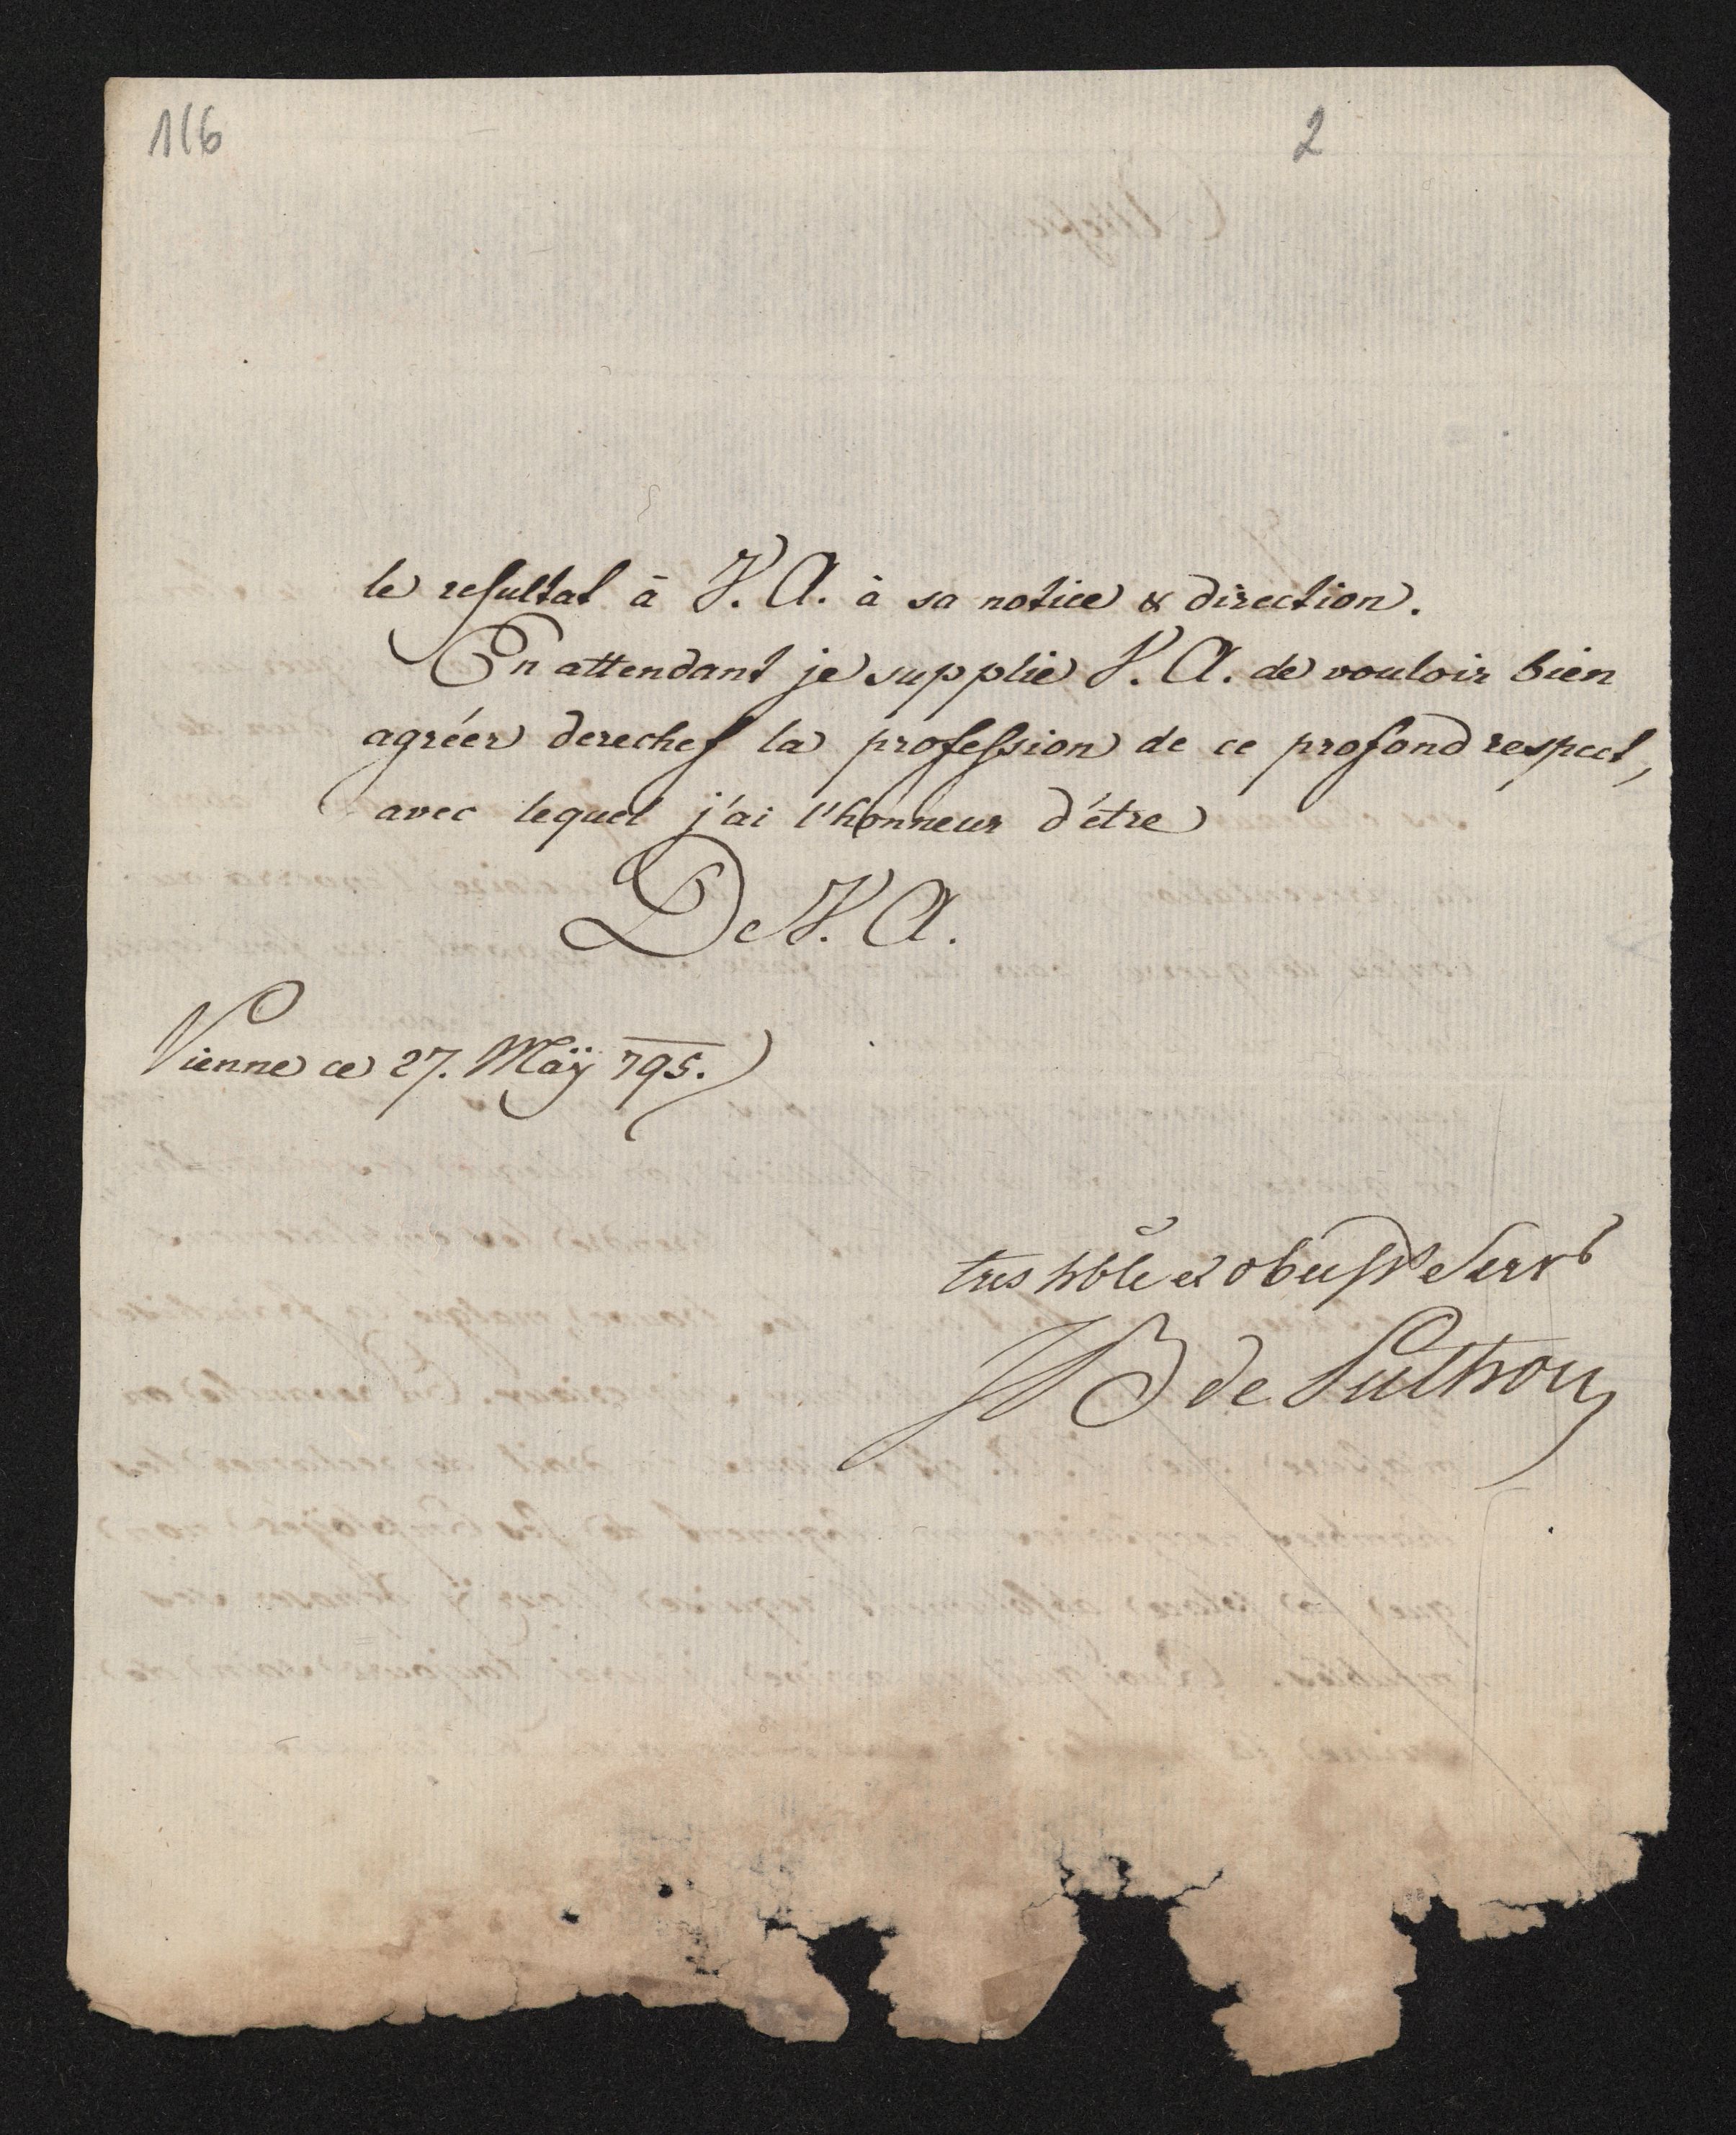 116
2
le resultat à V. A. à sa notice & direction.
En attendant je supplie V. A. de vouloir bien
agréer derechef la profession de ce profond respect,
avec lequel j'ai l'honneur d'étre
De V. A.
Vienne ce 27. Maÿ 795.
tres hble et obeisst Servt
de Puthon